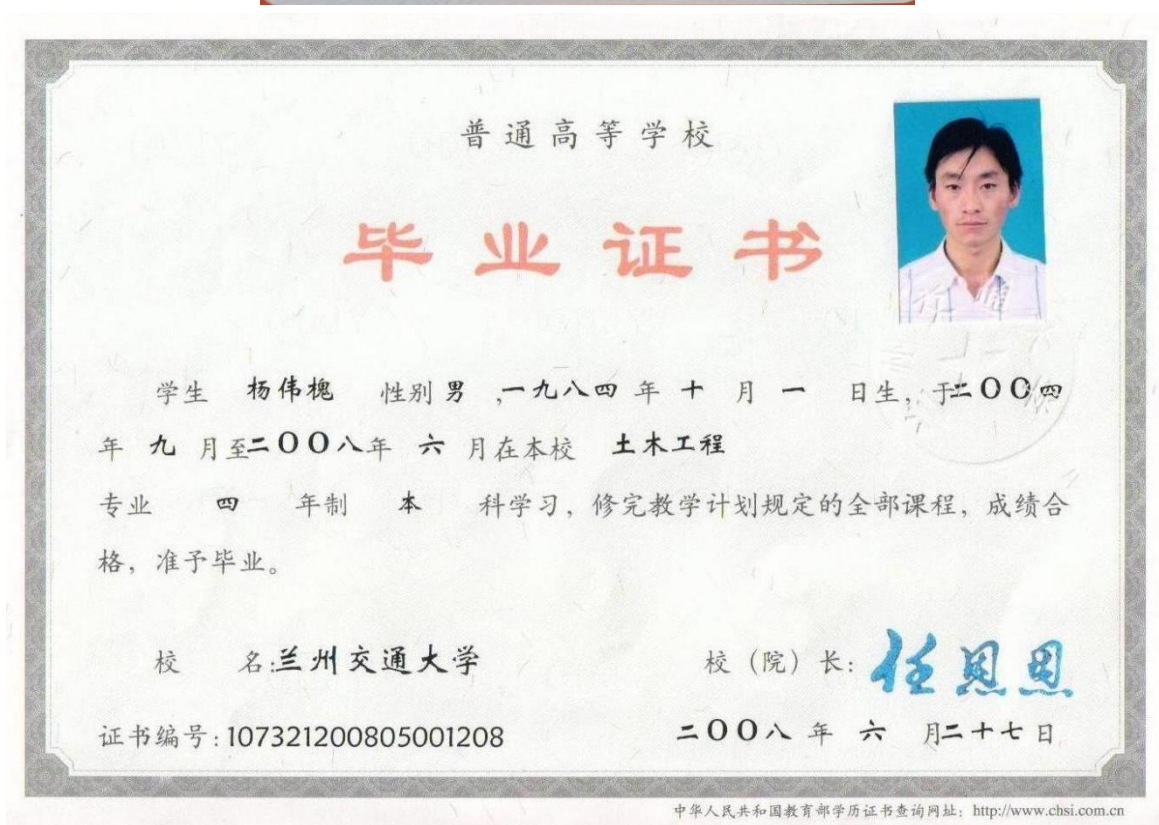 普通高等学校
毕业证书
学生 杨伟槐 性别 男 ,一九八四 年 十 月 一 日生, 于二〇〇四
年 九 月至二〇〇八年 六 月在本校 土木工程
专业 四 年制 本 科学习, 修完教学计划规定的全部课程, 成绩合
格, 准予毕业。
校 名:兰州交通大学 校（院）长: 任恩恩
证书编号: 107321200805001208 二〇〇八 年 六 月二十七日
中华人民共和国教育部学历证书查询网址: http://www.chsi.com.cn